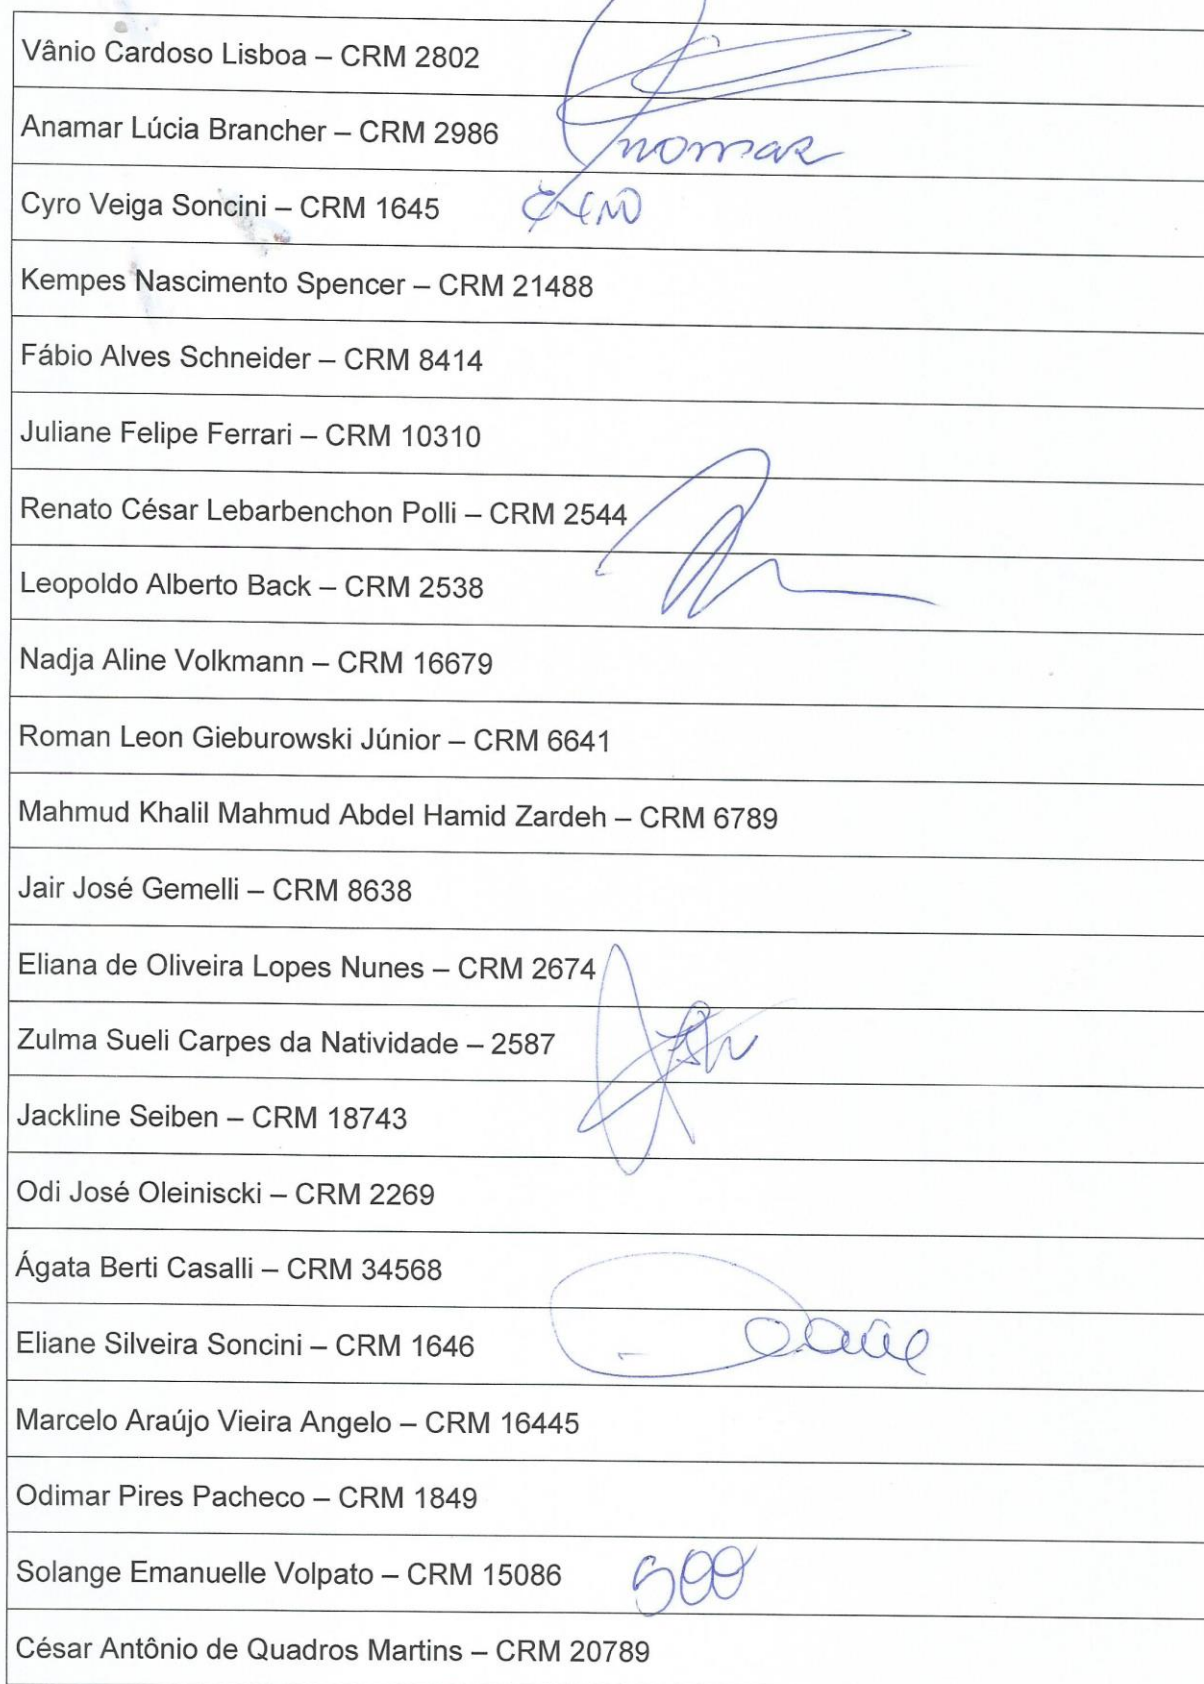 Vânio Cardoso Lisboa – CRM 2802
Anamar Lúcia Brancher – CRM 2986
Cyro Veiga Soncini – CRM 1645
Kempes Nascimento Spencer – CRM 21488
Fábio Alves Schneider – CRM 8414
Juliane Felipe Ferrari – CRM 10310
Renato César Lebarbenchon Polli – CRM 2544
Leopoldo Alberto Back – CRM 2538
Nadja Aline Volkmann – CRM 16679
Roman Leon Gieburowski Júnior – CRM 6641
Mahmud Khalil Mahmud Abdel Hamid Zardeh – CRM 6789
Jair José Gemelli – CRM 8638
Eliana de Oliveira Lopes Nunes – CRM 2674
Zulma Sueli Carpes da Natividade – 2587
Jackline Seiben – CRM 18743
Odi José Oleiniscki – CRM 2269
Ágata Berti Casalli – CRM 34568
Eliane Silveira Soncini – CRM 1646
Marcelo Araújo Vieira Angelo – CRM 16445
Odimar Pires Pacheco – CRM 1849
Solange Emanuelle Volpato – CRM 15086
César Antônio de Quadros Martins – CRM 20789